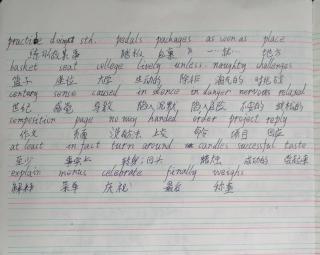 practice doing sth. pedals packages as soon as place
练习做某事 踏板 包裹 一…就… 地方
basket seat college lively unless naughty challenges
篮子 座位 大学 生动的 除非 淘气的 挑战
century sense caused in silence in danger nervous relaxed
世纪 感觉 导致 陷入沉默 陷入危险 不安的 放松的
composition page no way handed order project reply
作文 页面 没办法 上交 命令 项目 回应
at least in fact turn around candles successful taste
至少 事实上 转身;回头 蜡烛 成功的 尝起来
explain menus celebrate finally weighs
解释 菜单 庆祝 最后 称重